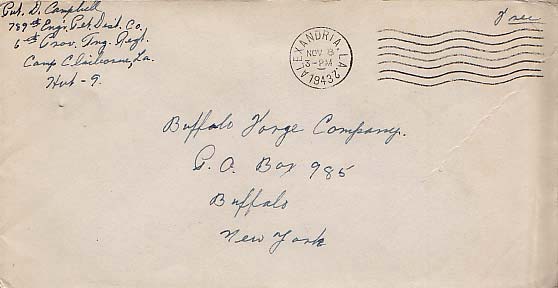 Pvt. D. Campbell
789th Engr. Pet. Dist. Co,
6th Prov. Tng. Regt.
Camp Claiborne, La.
Hut - 9.
ALEXANDRIA, LA.
NOV 8
3-PM
1943
Free
Buffalo Forge Company.
P. O. Box 985
Buffalo
New York